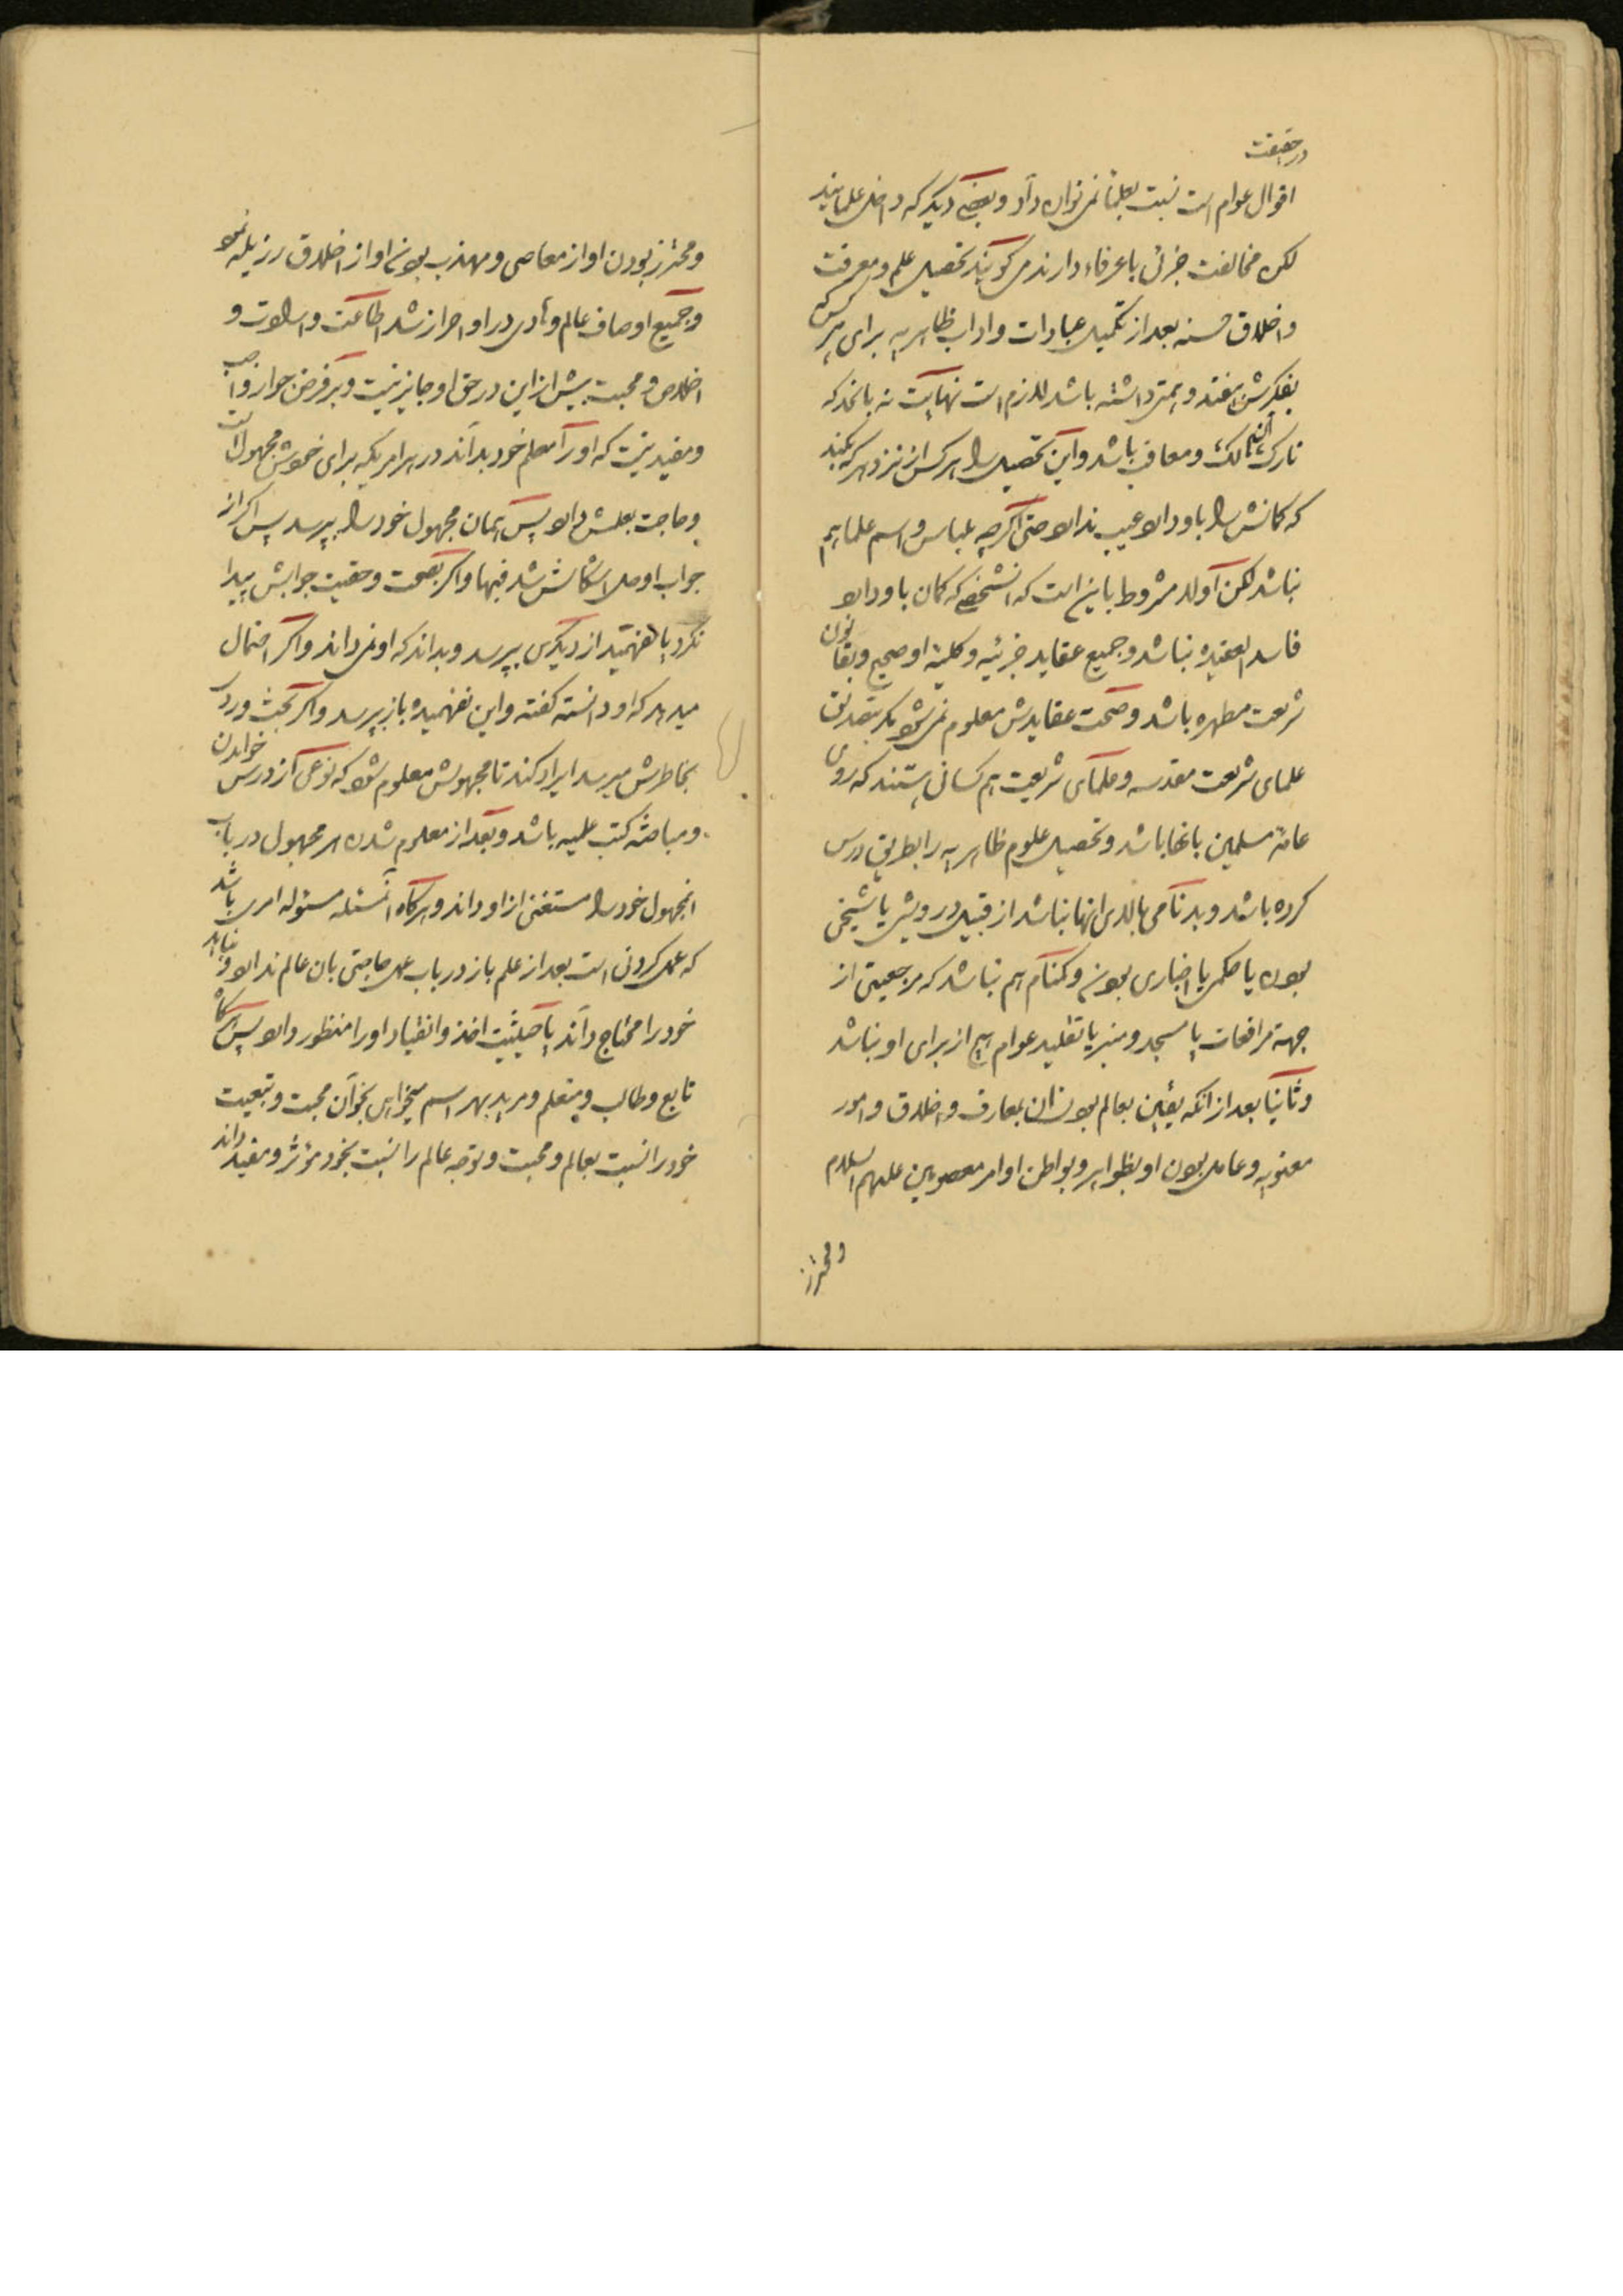 در حقیقت
اقوال عوام است نسبت بعلما نمی‌توان داد و بعضی دیگر که داخل علمایند
لکن مخالفت جزئی با عرفاء دارند می‌گویند تحصیل علم و معرفت
و اخلاق حسنه بعد از تکمیل عبادات و اداب ظاهریه برای هر کس که
بفکرش بیفتد و همتی داشته باشد لازم است نهایت نه بانحد که
تارک و معاف باشد و این تحصیل را هر کس از نزد هر که بکند
که گمانش را باو دارد عیب ندارد حتی اگرچه بلباس و اسم علما هم
نباشد لکن اولا مشروط باین است که انشخصی که گمان باو دارد
فاسد العقیده نباشد و جمیع عقاید جزئیه و کلیة او صحیح و بقانون
شریعت مطهره باشد و صحت عقایدش معلوم نمی‌شود مگر بتصدیق
علمای شریعت مقدسه و علمای شریعت هم کسانی هستند که روی
عامه مسلمین بانها باشد و تحصیل علوم ظاهریه را بطریق درس
کرده باشد و بدنامی بالای انها نباشد از قبیل درویش یا شیخی
بودن یا حکمی یا اخباری بودن و گمنام هم نباشد که مرجعیتی از
جهة مرافعات یا مسجد و منبر یا تقلید عوام هیچ از برای او نباشد
و ثانیا بعد از انکه یقین بعالم بودن ان بمعارف و اخلاق و امور
معنویه و عامل بودن او بظواهر و بواطن اوامر معصومین علیهم السلام
و محترز
و محترز بودن او از معاصی و مهذب بودن او از اخلاق رزیله نمود
و جمیع اوصاف عالم و هادی در او احراز شد اطاعت و ارادت و
اخلاص و محبت بیش از این در حق او جایز نیست و بر فرض جواز واجب
و مفید نیست که او را معلم خود بداند در هر امریکه برای خودش مجهول است
و حاجت بعلمش دارد پس همان مجهول خود را بپرسد پس اگر از
جواب او حل اشکالش شد فبها و اگر بصحت و حقیت جوابش پیدا
نکرد یا نفهمید از دیگری بپرسد و بداند که او نمی‌داند و اگر احتمال
میدهد که او دانسته گفته و این نفهمیده باز بپرسد و اگر بحث و ردی
بخاطرش میرسد ایراد کند تا مجهولش معلوم شود که نوعی از درس خواندن
و مباحثه کتب علمیه باشد و بعد از معلوم شدن هر مجهول در باب
انمجهول خود را مستغنی از او داند و هرگاه ان مسئله مسئوله امری باشد
که عمل کردنی است بعد از علم باز در باب عمل حاجتی بان عالم ندارد و نباید
خود را محتاج داند یا حیثیت اخذ و انقیاد او را منظور دارد پس
تابع و طالب و متعلم و مرید بهر اسم میخواهی بخوان محبت و تبعیت
خود را نسبت بعالم و محبت و توجه عالم را نسبت بخود مؤثر و مفید داند